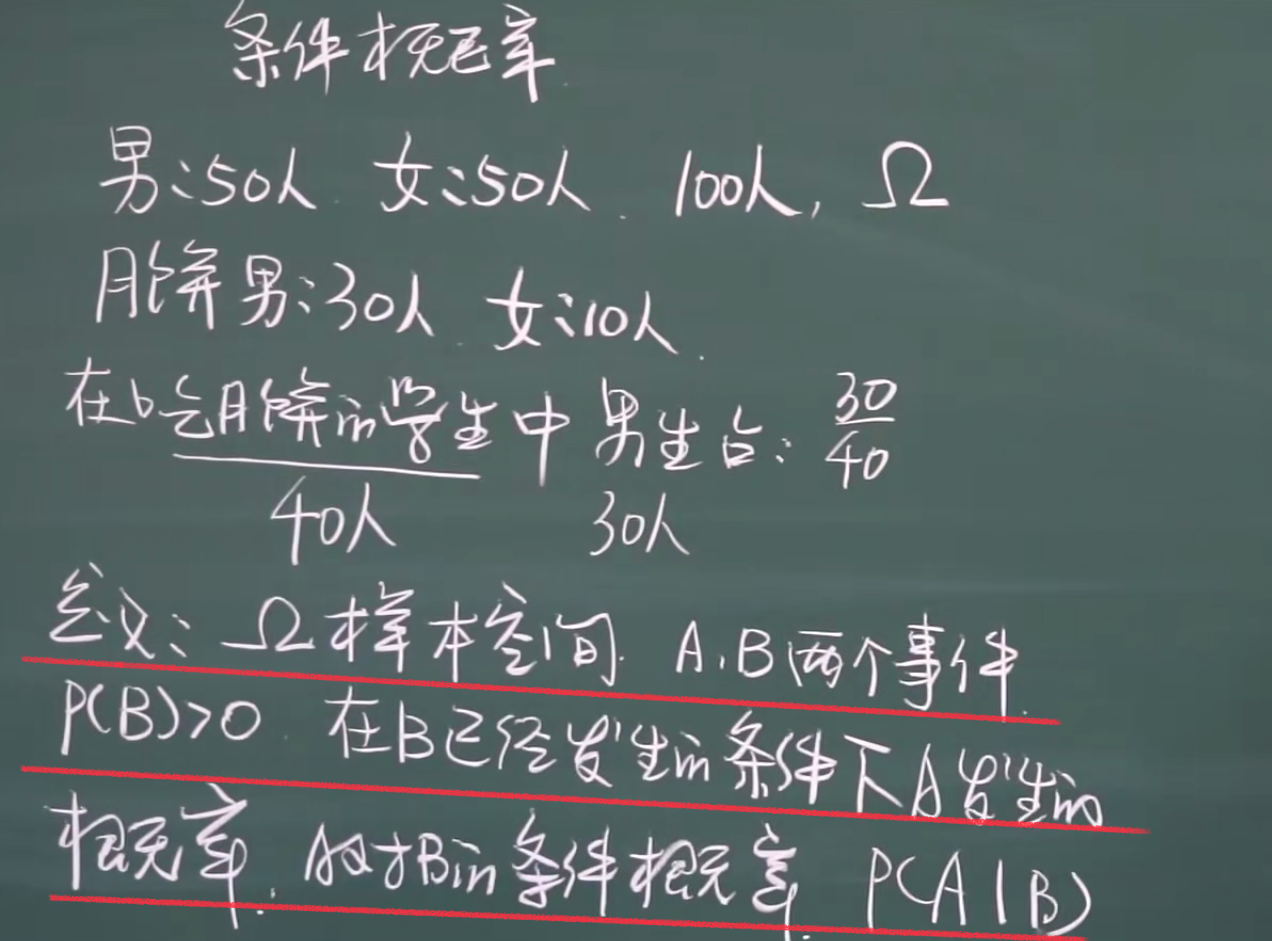 条件概率
男:50人 女:50人. 100人, Ω
月饼男:30人 女:10人.
在吃月饼的学生中男生占: 30/40
40人 30人
定义: Ω样本空间. A,B两个事件.
P(B)>0 在B已经发生的条件下A发生的
概率. A对B的条件概率. P(A|B)